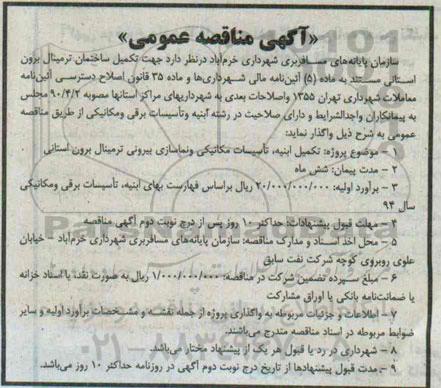 «آگهی مناقصه عمومی»
سازمان پایانه‌های مسافربری شهرداری خرم‌آباد درنظر دارد جهت تکمیل ساختمان ترمینال برون
استانی مستند به ماده (۵) آئین‌نامه مالی شهرداری‌ها و ماده ۳۵ قانون اصلاح دسترسی آئین‌نامه
معاملات شهرداری تهران ۱۳۵۵ واصلاحات بعدی به شهرداریهای مراکز استانها مصوبه ۹۰/۴/۲ مجلس
به پیمانکاران واجدالشرایط و دارای صلاحیت در رشته ابنیه وتأسیسات برقی ومکانیکی از طریق مناقصه
عمومی به شرح ذیل واگذار نماید:
۱ - موضوع پروژه: تکمیل ابنیه، تأسیسات مکانیکی ونماسازی بیرونی ترمینال برون استانی
۲ - مدت پیمان: شش ماه
۳ - برآورد اولیه: ۲۰/۰۰۰/۰۰۰/۰۰۰ ریال براساس فهارست بهای ابنیه، تأسیسات برقی ومکانیکی
سال ۹۴
۴ - مهلت قبول پیشنهادات: حداکثر ۱۰ روز پس از درج نوبت دوم آگهی مناقصه
۵ - محل اخذ اسناد و مدارک مناقصه: سازمان پایانه‌های مسافربری شهرداری خرم‌آباد - خیابان
علوی روبروی کوچه شرکت نفت سابق
۶ - مبلغ سپرده تضمین شرکت در مناقصه: ۱/۰۰۰/۰۰۰/۰۰۰ ریال به صورت نقد، یا اسناد خزانه
یا ضمانت‌نامه بانکی یا اوراق مشارکت
۷ - اطلاعات و جزئیات مربوطه به واگذاری پروژه از جمله نقشه و مشخصات برآورد اولیه و سایر
ضوابط مربوطه در اسناد مناقصه مندرج می‌باشند.
۸ - شهرداری در رد یا قبول هر یک از پیشنهاد مختار می‌باشد.
۹ - مدت قبول پیشنهادها از تاریخ درج نوبت دوم آگهی در روزنامه حداکثر ۱۰ روز می‌باشد.